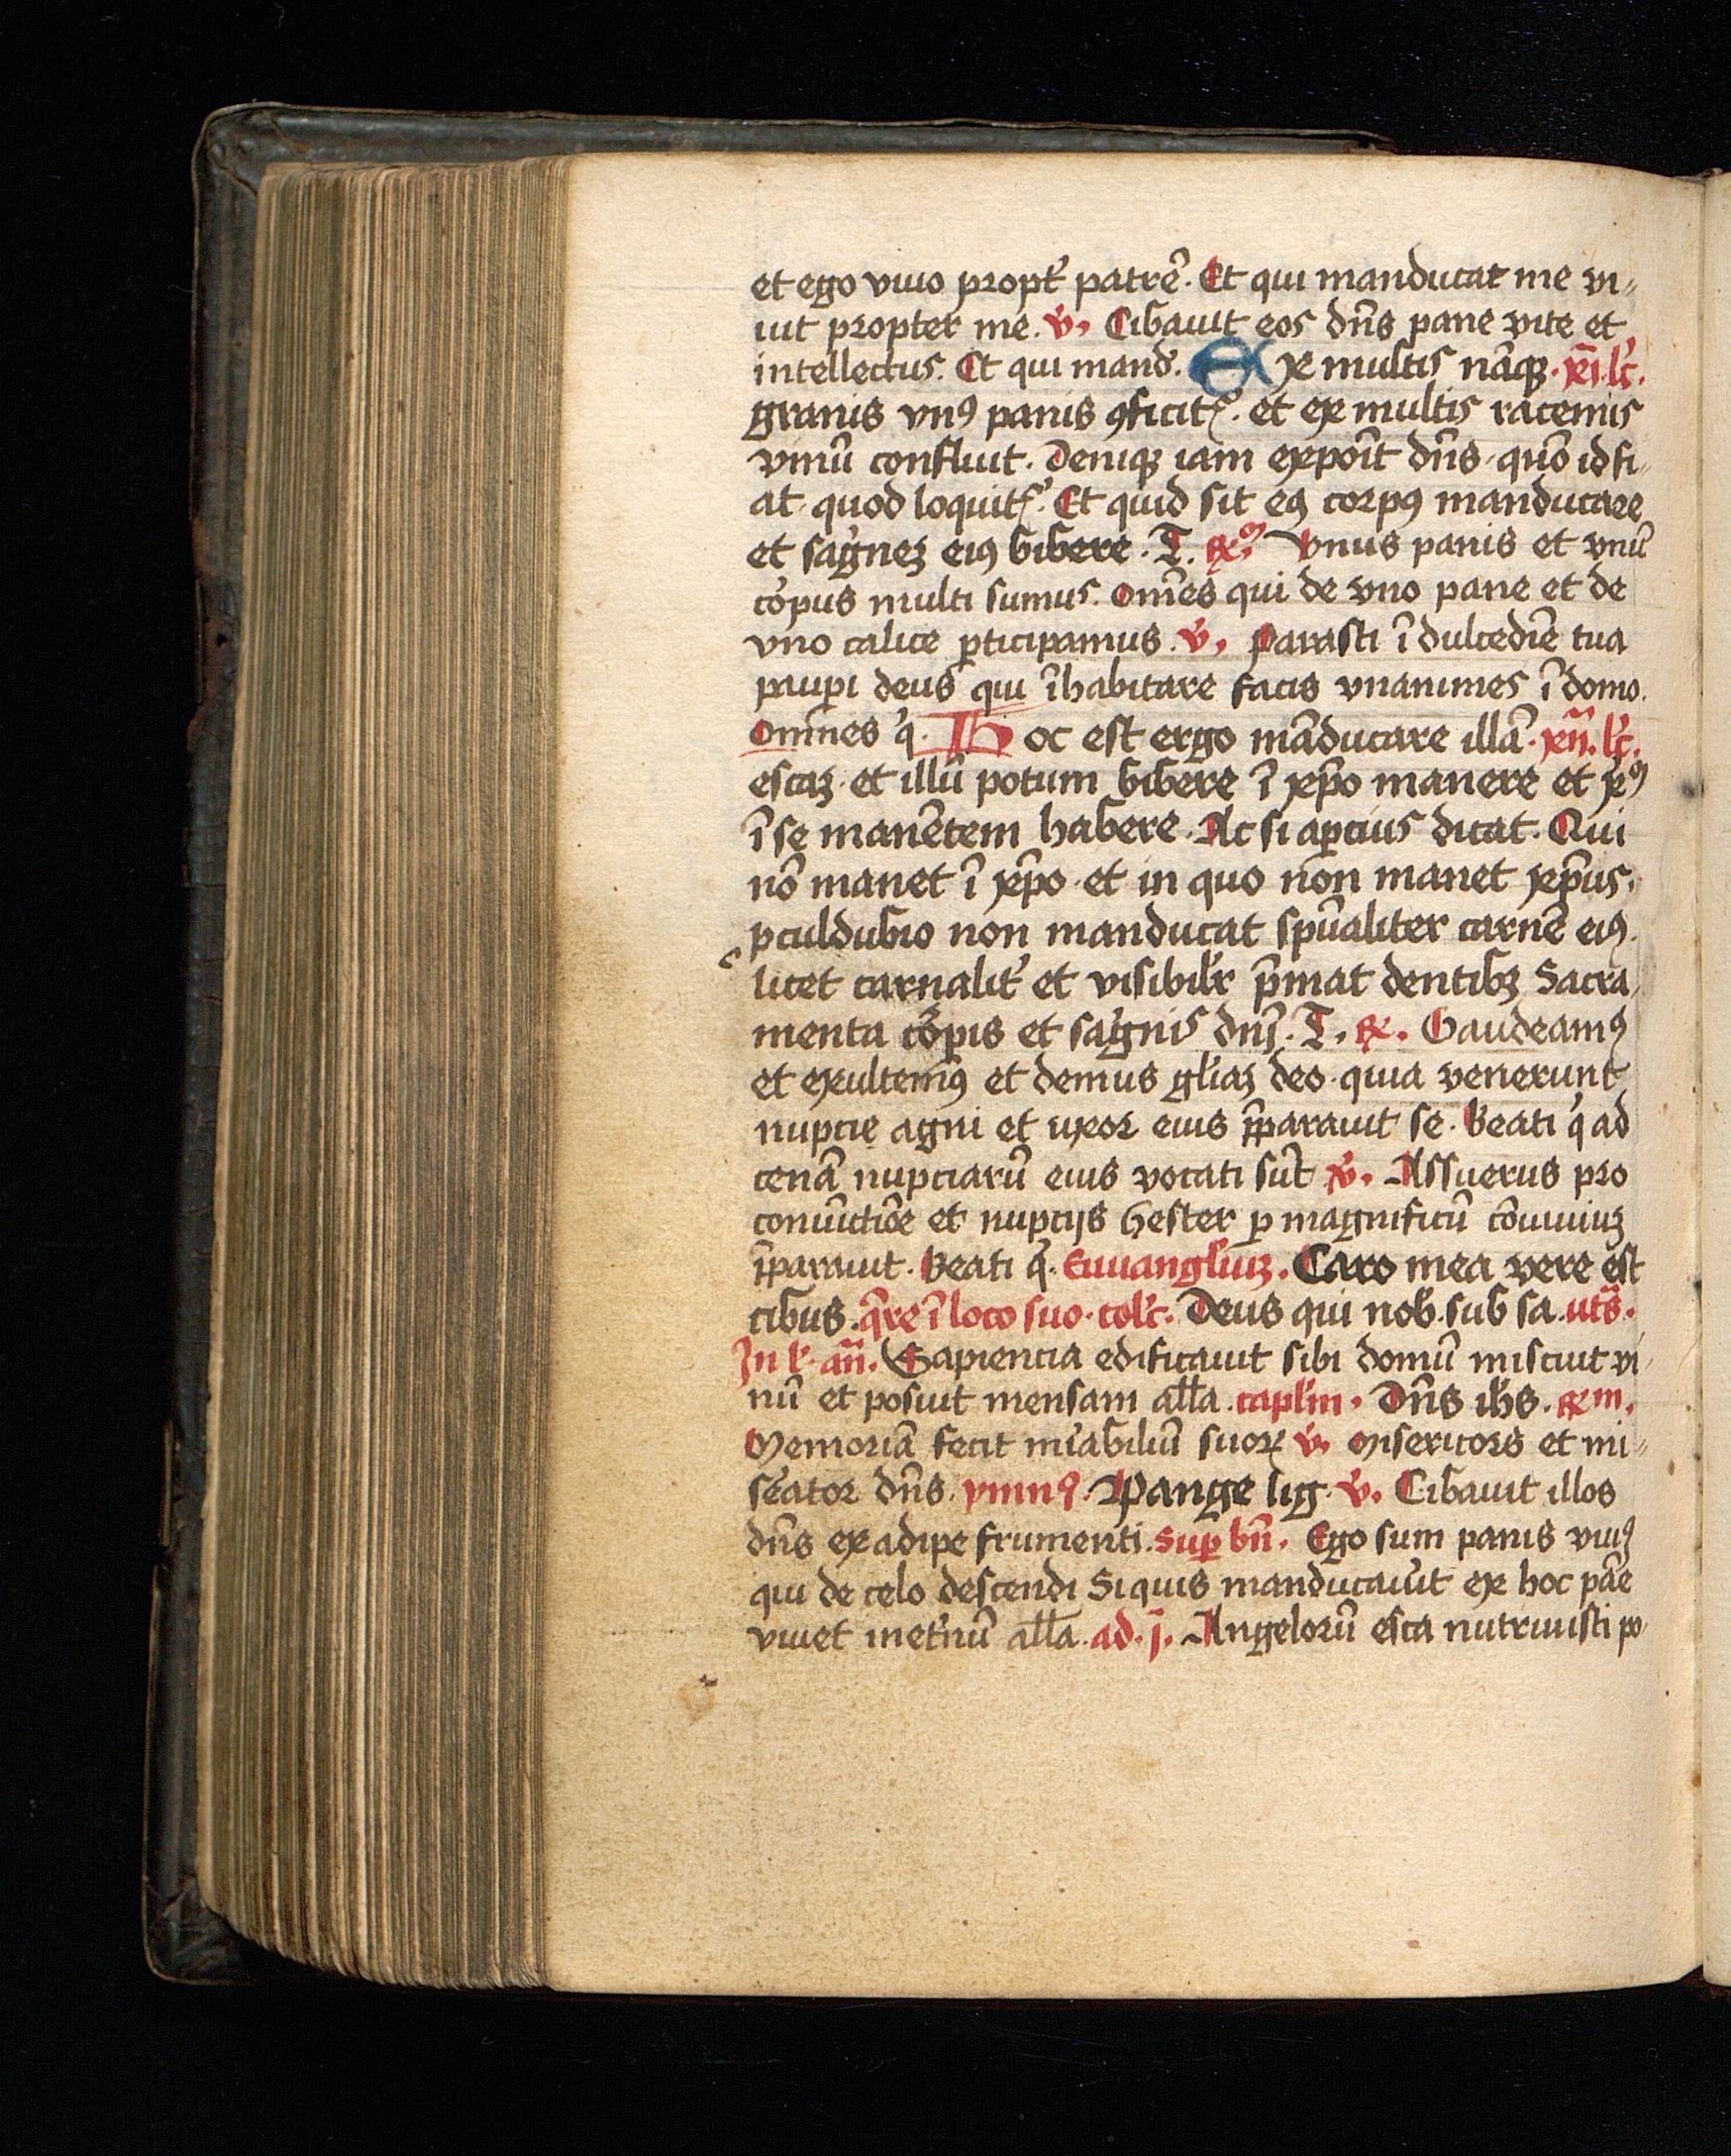 et ego viuo propt̾ patrē. Et qui manducat me vi⸗
uit propter me. v̾. Cibauit eos dn̄s pane vite et
intellectus. Et qui mand̾. Ex multis nāqꝫ. xi. lc̄.
granis vnꝰ panis ꝯficit᷑. et ex multis racemis
vinū confluit. Deniqꝫ iam expoīt dn̄s quō id fi⸗
at quod loquit᷑. Et quid sit eiꝰ corpꝰ manducare
et sāgnēꝫ eiꝰ bibere. T. ℟. Vnus panis et vnū
cōpus multi sumus. Om̄es qui de vno pane et de
vno calice ꝑticipamus. v̾. Parasti ī dulcedīe tua
pauꝑi deus qui īhabitare facis vnanimes ī domo.
Om̄nes q̇. Hoc est ergo māducare illā. xii. lc̄.
escaꝫ et illū potum bibere ī xp̄o manere et xꝰ
ī se manētem habere. Ac si aꝑcius dicat. Qui
nō manet ī xp̄o et in quo non manet xp̄us.
ꝓculdubio non manducat spūaliter carnē eiꝰ.
licet carnalit̾ et visibilr̄ p̄mat dentibꝫ Sacra⸗
menta cōꝑis et sāgnis dnī. T. ℟. Gaudeamꝰ
et exultemꝰ et demus glīaꝫ deo quia venerunt
nupcie agni et uxor eius p̄parauit se. Beati q̇ ad
cenā nupciarū eius vocati sūt v̾. Assuerus pro
coniūctiōe et nupcijs hester ꝑ magnificū cōuiuiuꝫ
p̄parauit. Beati q̇. Euuangl̄iuꝫ. Caro mea vere est
cibus. q̄re ī loco suo. col̄c. Deus qui nob̾. sub sa. ut s̄.
In k. an̄. Sapiencia edificauit sibi domū miscuit vi⸗
nū et posuit mensam all̄a. capl̄m. Dn̄s ih̄s. ℟ m.
Memoriā fecit mīabiliū suoꝝ v̾. Misericors et mi⸗
sēator dn̄s. ymnꝰ. Pange lig. v̾. Cibauit illos
dn̄s ex adipe frumenti. Suꝑ bn̄. Ego sum panis viuꝰ
qui de celo descendi Si quis manducau̾it ex hoc pāe
viuet inet̾nū all̄a. ad. j. Angelorū esca nutriuisti po⸗